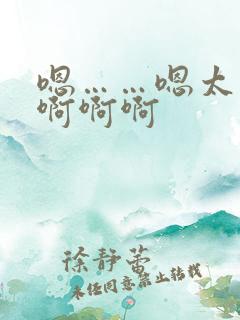 嗯……嗯太
啊啊啊
徐静蕾
未经同意禁止转载